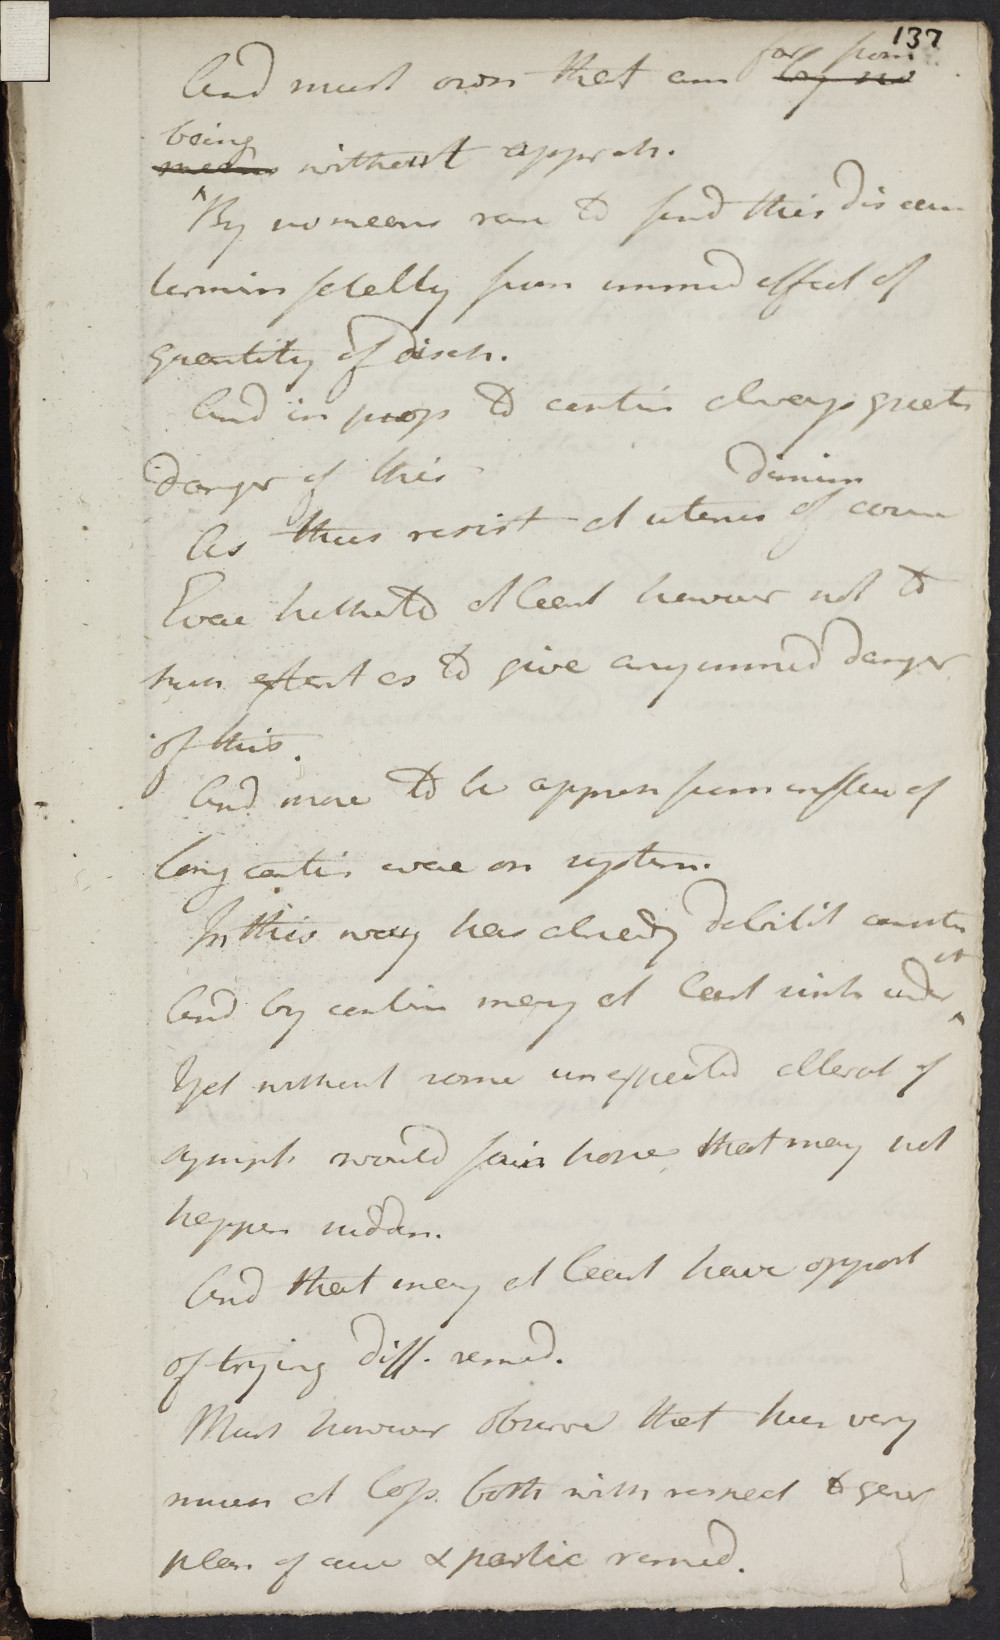 137
And must own that am far from
by no
being
means without appreh.
By no means rare to find this disease
termin fatally from immed effect of
quantity of disch.
And in prop to contin always greater
danger of this
As thus resist at uterus dimin of course
Evac hitherto at least however not to
such extent as to give any immed danger
of this.
And more to be appreh from influ of
long contin evac on system.
In this way has already debilit constit
And by contin may at least sink under it
Yet without some unexpected alterat of
symptt would fain hope that may not
happen sudden.
And that may at least have opport
of trying diff. remed.
Must however observe that here very
much at loss both with respect to gener
plan of cure & partic remed.